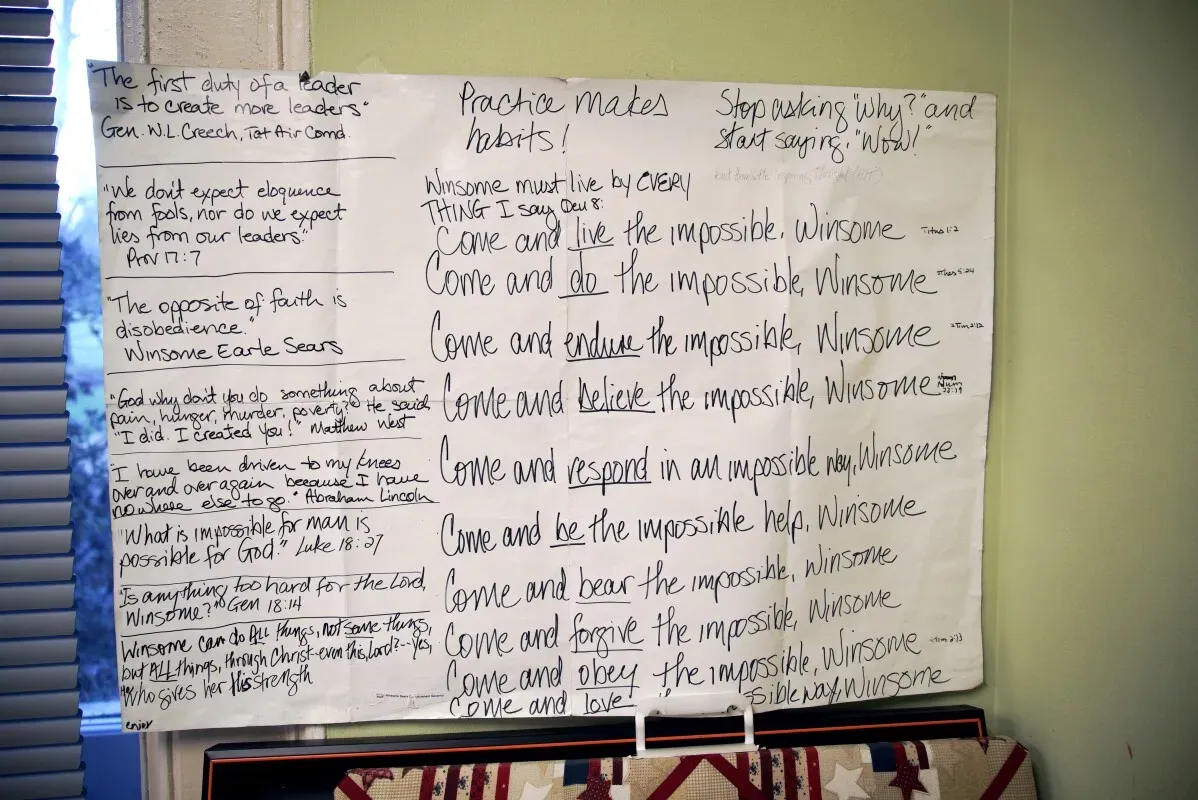 "The first duty of a leader
is to create more leaders"
Gen. W.L. Creech, Tat Air Comd.
"We don't expect eloquence
from fools, nor do we expect
lies from our leaders."
Prov 17:7
"The opposite of faith is
disobedience."
Winsome Earle Sears
"God why don't you do something about
pain, hunger, murder, poverty?" He said,
"I did. I created you!" Matthew West
"I have been driven to my knees
over and over again because I have
nowhere else to go." Abraham Lincoln
"What is impossible for man is
possible for God." Luke 18:27
"Is anything too hard for the Lord,
Winsome?" Gen 18:14
Winsome can do ALL things, not some things,
but ALL things, through Christ--even this, Lord?--yes,
who gives her His strength
enjoy
Practice makes
habits!
Stop asking "Why?" and
start saying, "Wow!"
Winsome must live by EVERY
THING I say Deu 8:
Come and live the impossible, Winsome Titus 1:2
Come and do the impossible, Winsome 1Thes 5:24
Come and endure the impossible, Winsome 2Tim 2:12
Come and believe the impossible, Winsome Num
Come and respond in an impossible way, Winsome
Come and be the impossible help, Winsome
Come and bear the impossible, Winsome
Come and forgive the impossible, Winsome
Come and obey the impossible, Winsome
Come and love ssible way, Winsome